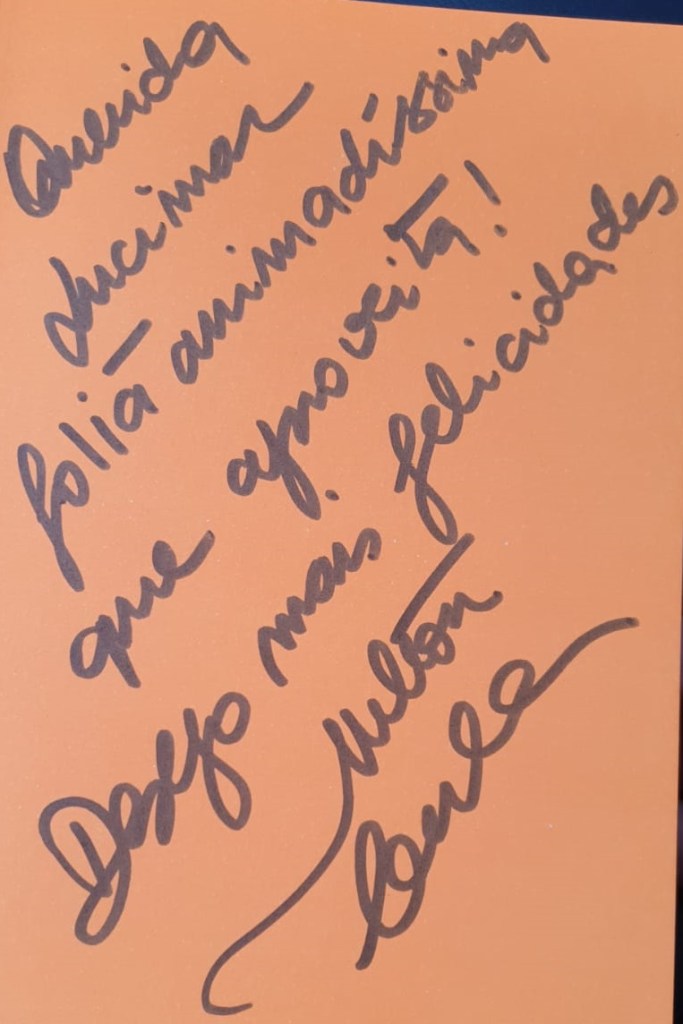 Querida
Lucimar
foliã animadíssima
que aproveita!
Desejo mais felicidades
Milton
Cunha